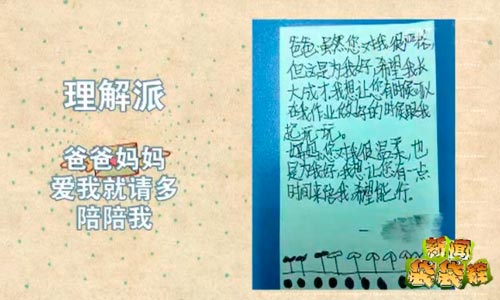 理解派
爸爸妈妈
爱我就请多
陪陪我
爸爸:虽然您对我很严格,
但这是为我好,希望我长
大成才,我想让您有时候可以
在我作业做好的时候跟我
起玩玩。
妈妈,您对我很温柔,也
是为我好,我想让您有一点
时间来陪我,希望能行。
新闻
袋袋裤